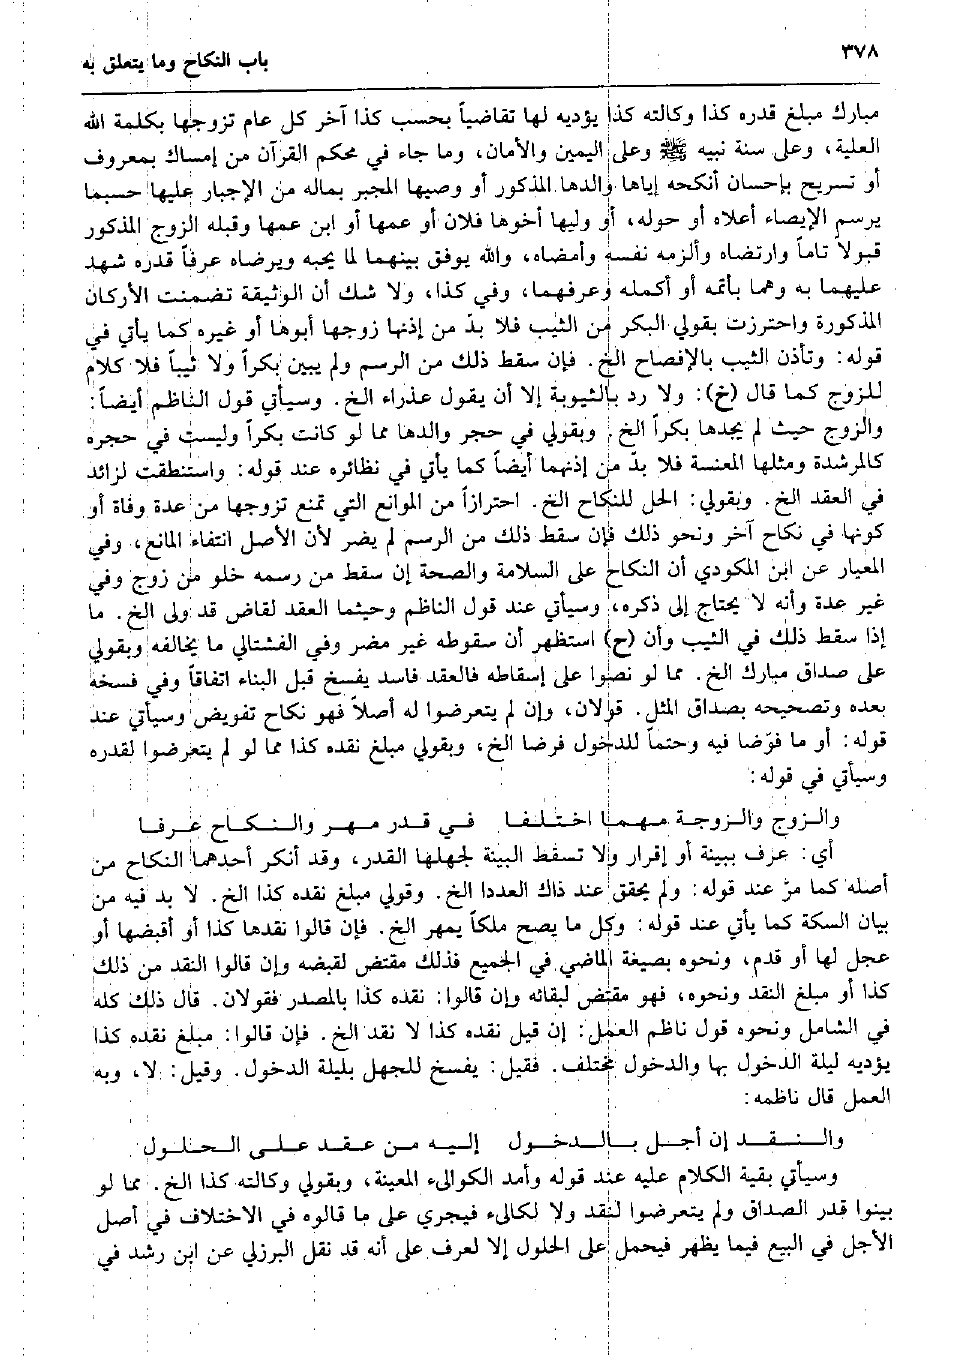 ٣٧٨
باب النكاح وما يتعلق به
مبارك مبلغ قدره كذا وكالته كذا يؤديه لها تقاضياً بحسب كذا آخر كل عام تزوجها بكلمة الله
العلية، وعلى سنة نبيه ﷺ وعلى اليمين والأمان، وما جاء في محكم القرآن من إمساك بمعروف
أو تسريح بإحسان أنكحه إياها والدها المذكور أو وصيها المجبر بماله من الإجبار عليها حسبما
يرسم الإيصاء أعلاه أو حوله، أو وليها أخوها فلان أو عمها أو ابن عمها وقبله الزوج المذكور
قبولا تاماً وارتضاه وألزمه نفسه وأمضاه، والله يوفق بينهما لما يحبه ويرضاه عرفاً قدره شهد
عليهما به وهما بأتمه أو أكمله وعرفهما، وفي كذا، ولا شك أن الوثيقة تضمنت الأركان
المذكورة واحترزت بقولي البكر من الثيب فلا بدّ من إذنها زوجها أبوها أو غيره كما يأتي في
قوله: وتأذن الثيب بالإفصاح الخ. فإن سقط ذلك من الرسم ولم يبين بكراً ولا ثيباً فلا كلام
للزوج كما قال (خ): ولا رد بالثيوبة إلا أن يقول عذراء الخ. وسيأتي قول الناظم أيضاً:
والزوج حيث لم يجدها بكراً الخ. وبقولي في حجر والدها مما لو كانت بكراً وليست في حجره
كالمرشدة ومثلها المعنسة فلا بدّ من إذنهما أيضاً كما يأتي في نظائره عند قوله: واستنطقت لزائد
في العقد الخ. وبقولي: الحل للنكاح الخ. احترازاً من الموانع التي تمنع تزوجها من عدة وفاة أو
كونها في نكاح آخر ونحو ذلك فإن سقط ذلك من الرسم لم يضر لأن الأصل انتفاء المانع، وفي
المعيار عن ابن المكودي أن النكاح على السلامة والصحة إن سقط من رسمه خلو من زوج وفي
غير عدة وأنه لا يحتاج إلى ذكره، وسيأتي عند قول الناظم وحيثما العقد لقاض قد ولى الخ. ما
إذا سقط ذلك في الثيب وأن (ح) استظهر أن سقوطه غير مضر وفي الفشتالي ما يخالفه وبقولي
على صداق مبارك الخ. مما لو نصوا على إسقاطه فالعقد فاسد يفسخ قبل البناء اتفاقاً وفي فسخه
بعده وتصحيحه بصداق المثل. قولان، وإن لم يتعرضوا له أصلاً فهو نكاح تفويض وسيأتي عند
قوله: أو ما فوّضا فيه وحتماً للدخول فرضا الخ، وبقولي مبلغ نقده كذا مما لو لم يتعرضوا لقدره
وسيأتي في قوله:
والزوج والزوجة مهما اختلفا في قدر مهر والنكاح عرفا
أي: عرف ببينة أو إقرار ولا تسقط البينة لجهلها القدر، وقد أنكر أحدهما النكاح من
أصله كما مرّ عند قوله: ولم يحقق عند ذاك العددا الخ. وقولي مبلغ نقده كذا الخ. لا بد فيه من
بيان السكة كما يأتي عند قوله: وكل ما يصح ملكاً يمهر الخ. فإن قالوا نقدها كذا أو أقبضها أو
عجل لها أو قدم، ونحوه بصيغة الماضي في الجميع فذلك مقتض لقبضه وإن قالوا النقد من ذلك
كذا أو مبلغ النقد ونحوه، فهو مقتض لبقائه وإن قالوا: نقده كذا بالمصدر فقولان. قال ذلك كله
في الشامل ونحوه قول ناظم العمل: إن قيل نقده كذا لا نقد الخ. فإن قالوا: مبلغ نقده كذا
يؤديه ليلة الدخول بها والدخول مختلف. فقيل: يفسخ للجهل بليلة الدخول. وقيل: لا، وبه
العمل قال ناظمه:
والنقد إن أجل بالدخول إليه من عقد على الحلول
وسيأتي بقية الكلام عليه عند قوله وأمد الكوالىء المعينة، وبقولي وكالته كذا الخ. مما لو
بينوا قدر الصداق ولم يتعرضوا لنقد ولا لكالىء فيجري على ما قالوه في الاختلاف في أصل
الأجل في البيع فيما يظهر فيحمل على الحلول إلا لعرف على أنه قد نقل البرزلي عن ابن رشد في